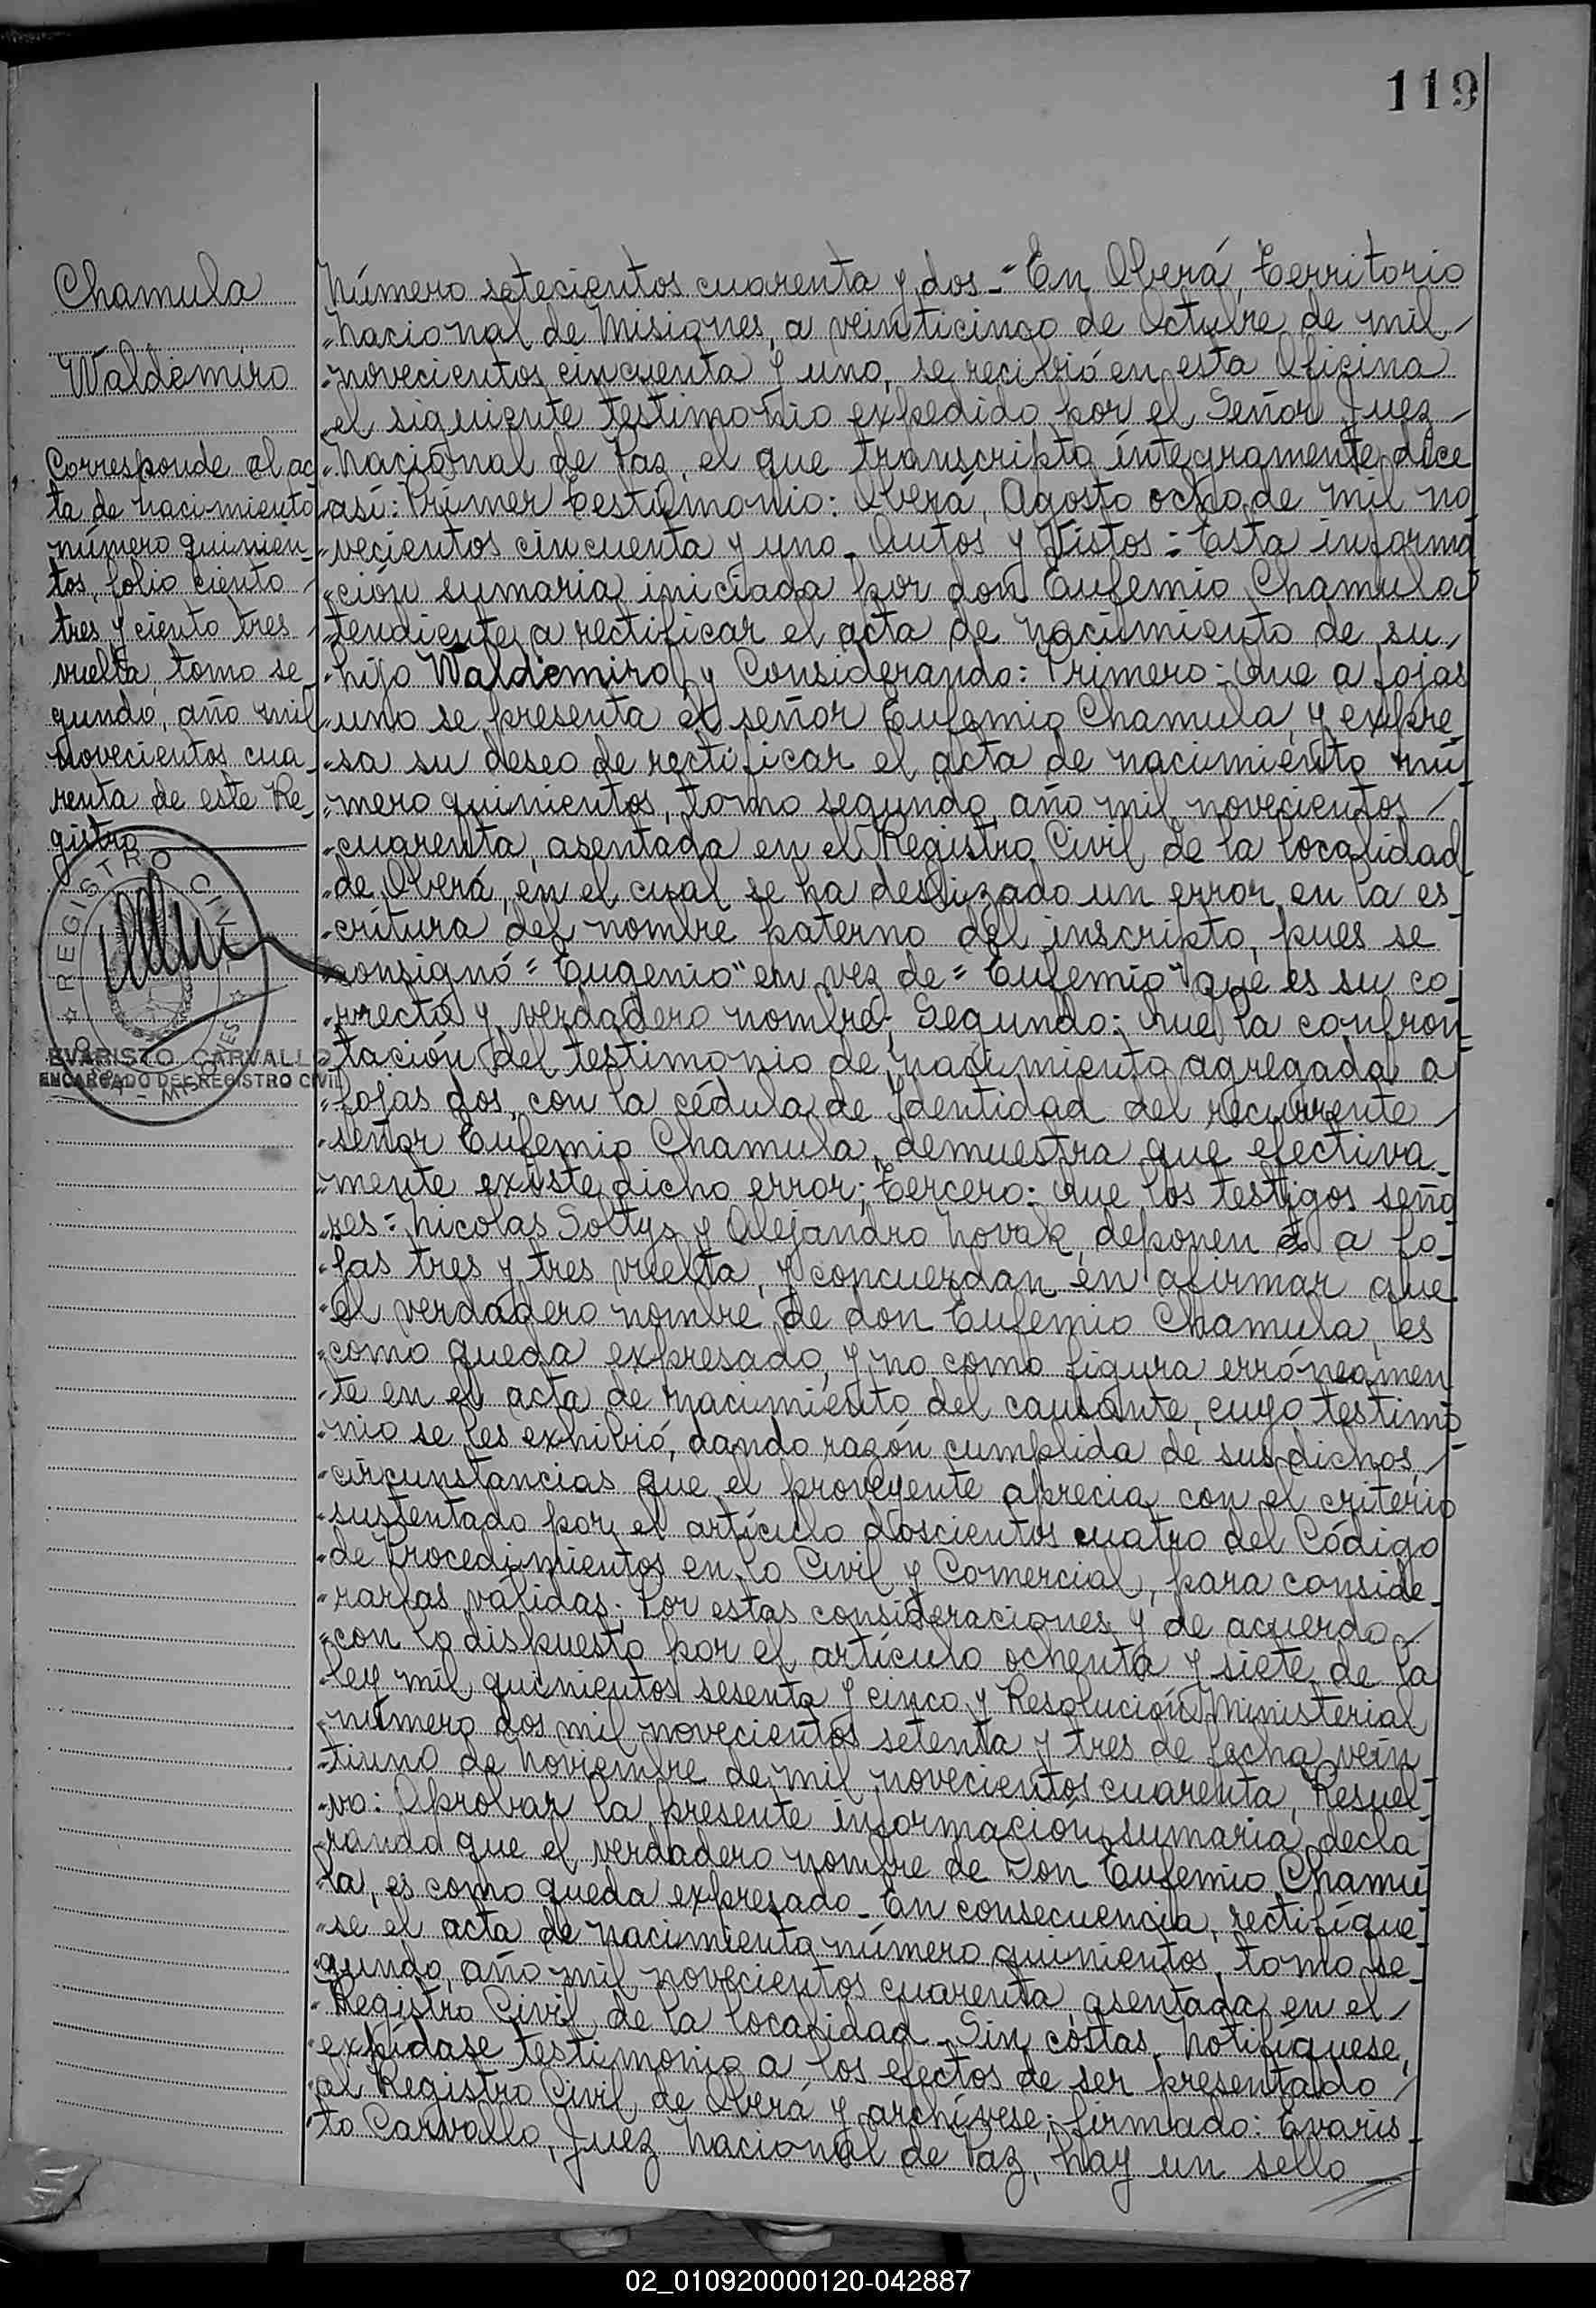 119
Chamula
Waldemiro
Corresponde al ac
ta de nacimiento
número quinien-
tos, folio ciento
tres y ciento tres
vuelta, tomo se-
gundo, año mil
novecientos cua-
renta de este Re-
gistro
REGISTRO CIVIL
MISIONES
EVARISTO CARVALLO
ENCARGADO DEL REGISTRO CIVIL
Número setecientos cuarenta y dos = En Oberá, Territorio
Nacional de Misiones, a veinticinco de Octubre de mil
novecientos cincuenta y uno, se recibió en esta Oficina
el siguiente testimonio expedido por el Señor Juez
Nacional de Paz, el que transcripto íntegramente dice
así: Primer Testimonio: Oberá, Agosto ocho de mil no
vecientos cincuenta y uno. Autos y Vistos: Esta informa
ción sumaria iniciada por don Eufemio Chamula
tendiente a rectificar el acta de nacimiento de su
hijo Waldemiro, y Considerando: Primero: Que a fojas
uno se presenta el señor Eufemio Chamula, y expre-
sa su deseo de rectificar el acta de nacimiento nú
mero quinientos, tomo segundo, año mil novecientos
cuarenta, asentada en el Registro Civil de la localidad
de Oberá, en el cual se ha deslizado un error en la es
critura del nombre paterno del inscripto, pues se
consignó = Eugenio" en vez de = Eufemio" que es su co
rrecto y verdadero nombre; Segundo: Que la confron
tación del testimonio de nacimiento agregada a
fojas dos, con la cédula de Identidad del recurrente
señor Eufemio Chamula, demuestra que efectiva-
mente existe dicho error; Tercero: Que los testigos seño
res = Nicolas Soltys y Alejandro Novak, deponen a fo-
jas tres y tres vuelta, y concuerdan en afirmar que
el verdadero nombre de don Eufemio Chamula, es
como queda expresado, y no como figura erróneamen
te en el acta de nacimiento del causante, cuyo testimo
nio se les exhibió, dando razón cumplida de sus dichos,
circunstancias que el proveyente aprecia con el criterio
sustentado por el artículo doscientos cuatro del Código
de Procedimientos en lo Civil y Comercial, para conside-
rarlas válidas; Por estas consideraciones y de acuerdo
con lo dispuesto por el artículo ochenta y siete de la
ley mil quinientos sesenta y cinco y Resolución Ministerial
número dos mil novecientos setenta y tres de fecha vein
tiuno de Noviembre de mil novecientos cuarenta, Resuel-
vo: Aprobar la presente información sumaria, decla
rando que el verdadero nombre de Don Eufemio Chamu
la, es como queda expresado. En consecuencia, rectifíque-
se el acta de nacimiento número quinientos, tomo se-
gundo, año mil novecientos cuarenta asentada en el
Registro Civil de la localidad. Sin costas. Notifíquese,
expídase testimonio a los efectos de ser presentado
al Registro Civil de Oberá y archívese; firmado: Evaris-
to Carvallo, Juez Nacional de Paz, hay un sello
02_010920000120-042887